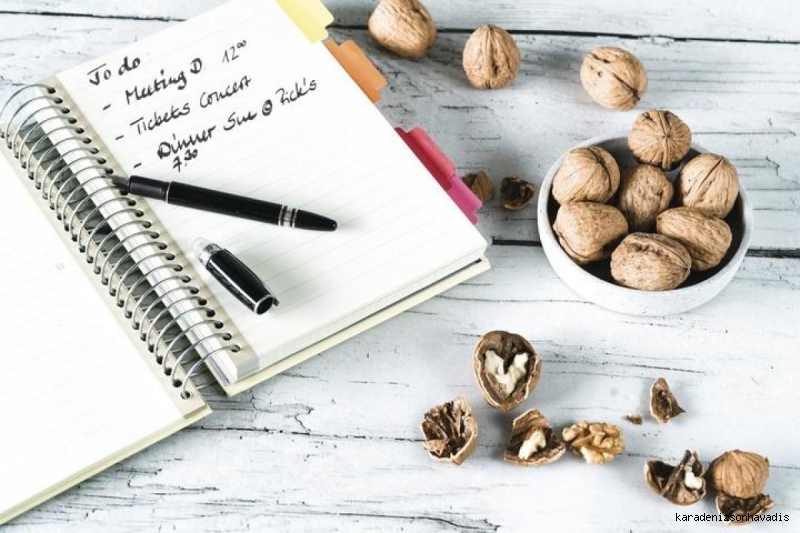 To do
- Meeting D. 12⁰⁰
- Tickets Concert
- Dinner Sue @ Rick's
7.30
karadenizsonhavadis